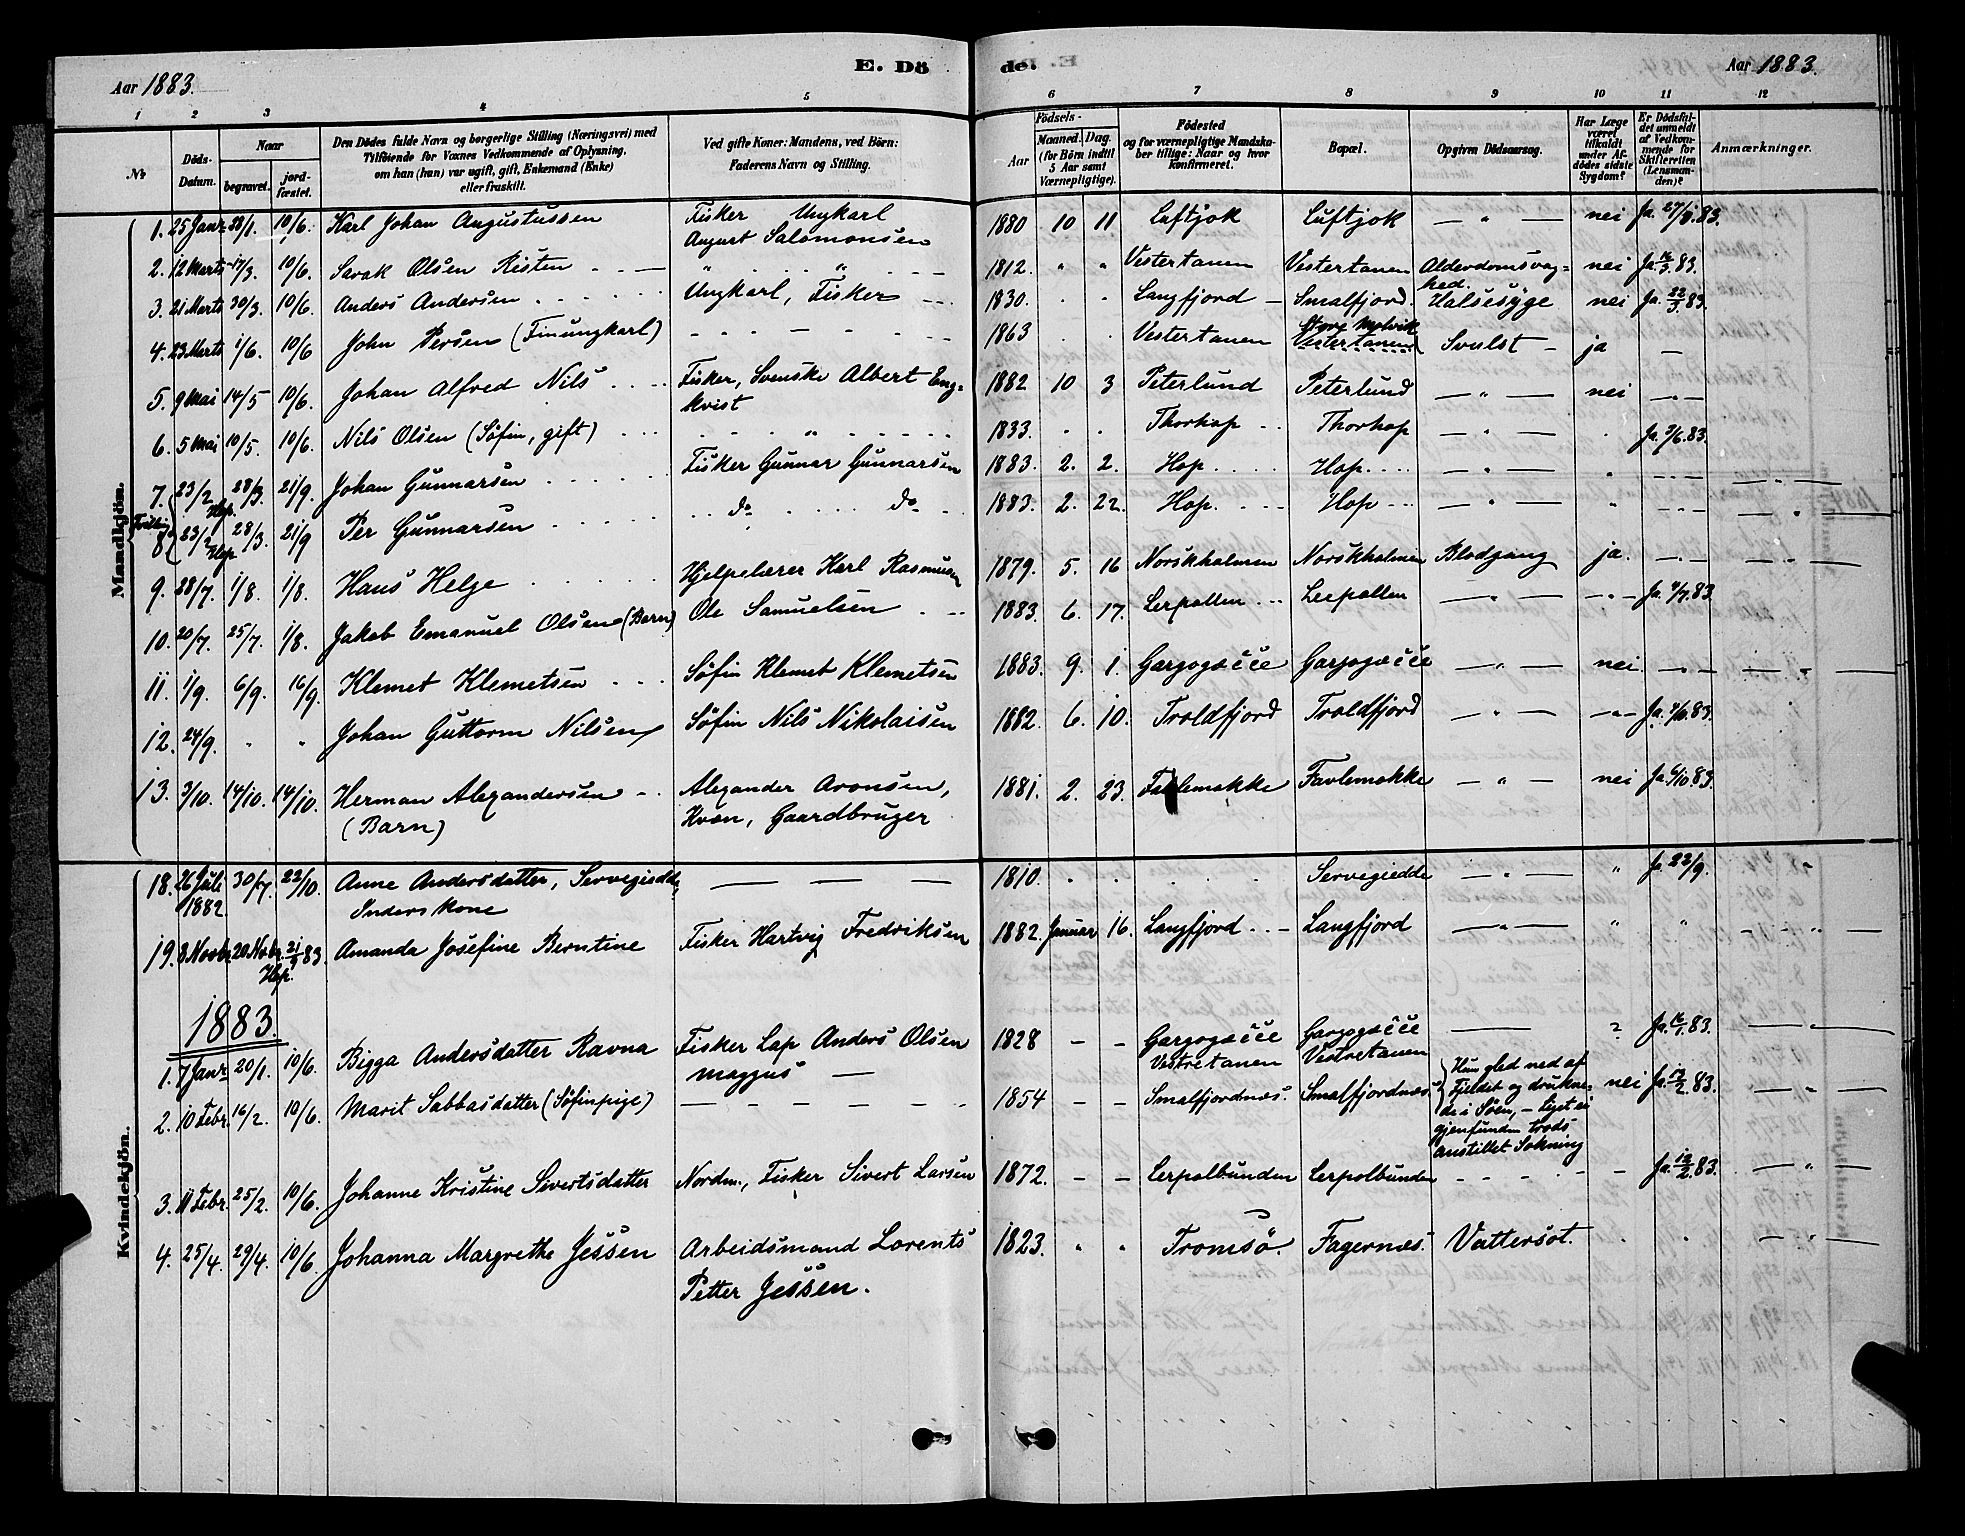 Aar 1883. E. Dö de. Aar 1883.
1 2 3 4 5 6 7 8 9 10 11 12
№ Döds-Datum. Naar begravet. jordfæstet. Den Dödes fulde Navn og borgerlige Stilling (Næringsvei) med Tilföiende for Voxnes Vedkommende af Oplysning, om han (hun) var ugift, gift, Enkemand (Enke) eller fraskilt. Ved gifte Koner: Mandens, ved Börn: Faderens Navn og Stilling. Födsels- Aar Maaned. Dag. (for Börn indtil 5 Aar samt Værnepligtige). Födested og for værnepligtige Mandskaber tillige: Naar og hvor konfirmeret. Bopæl. Opgiven Dödsaarsag. Har Læge været tilkaldt under Afdödes sidste Sygdom? Er Dödsfaldet anmeldt af Vedkommende for Skifteretten (Lensmanden)? Anmærkninger.
Mandkjön.
1. 25 Janr 28/1. 10/6. Karl Johan Augustussen Fisker Ungkarl August Salomonsen 1880 10 11 Luftjok Luftjok — " — nei Ja. 27/8.83.
2. 12 Marts 17/3. 10/6. Sarak Olsen Risten " " 1812. " " Vestertanen Vestertanen Alderdomsvaghed. nei Ja. 16/3.83.
3. 21 Marts 30/3. 10/6. Anders Andersen Ungkarl, Fisker 1830. Langfjord — Smalfjord. Halsesyge nei Ja. 22/3.83.
4. 23 Marts 1/6. 10/6 John Persen (Finungkarl) — 1863 Vestertanen Store Molvik Vestertanen Svulst — ja —
5. 9 Mai 14/5 10/6. Johan Alfred Nils Fisker, Svenske Albert Engkvist 1882 10 3 Peterlund Peterlund — " — nei — " —
6. 5 Mai 10/5. 10/6. Nils Olsen (Söfin, gift) " 1833. Thorhop Thorhop — " — Ja. 3/6.83.
Tvilling
7. 23/2 28/3. Hop. 21/9. Johan Gunnarsen Fisker Gunnar Gunnarsen 1883. 2. 2. Hop. Hop. — " — "
8. 23/2 28/3. Hop. 21/9 Per Gunnarsen do do 1883. 2. 22. Hop. Hop — " — "
9. 28/7. 1/8. 1/8. Hans Helge Hjelpelærer Karl Rasmusen 1879. 5. 16 Norskholmen Norskholmen Blodgang ja. — " —
10. 20/7. 25/7. 1/8. Jakob Emanuel Olsen (Barn) Ole Samuelsen 1883. 6. 17. Lerpollen Lerpollen — " — — " — Ja. 4/7.83
11. 1/9. 6/9. 16/9. Klemet Klemetsen Söfin Klemet Klemetsen 1883. 9. 1. Gargogæčče Gargogæčče — " — nei — " —
12. 24/9. " " Johan Guttorm Nilsen Söfin Nils Nikolaisen 1882. 6. 10. Troldfjord Troldfjord — " — — " —
13. 3/10. 14/10. 14/10. Herman Alexandersen (Barn) Alexander Aronsen, Kvæn, Gaardbruger 1881. 2. 23. Favlemokke — " — nei Ja. 6/10.83.
Kvindekjön.
18. 26 Juli 1882. 30/7. 22/10. Anne Andersdatter, Servegiedde, Inderskone — — — 1810. Servegiedde — " — " Ja 22/9. "
19. 3 Novbr. 20 Novbr. Hop. 21/9 83. Amanda Josefine Berntine Fisker Hartvig Fredriksen 1882. Januar 16. Langfjord Langfjord — " — " "
1883.
1. 7 Janr 20/1. 10/6. Bigga Andersdatter Ravna Fisker Lap Anders Olsen Maggus — 1828 — — Gargogæčče Vestretanen Gargogæčče Vestretanen — Ja. 16/1.83.
2. 10 Febr. 16/2. 10/6. Marit Sabbasdatter (Söfinpige) — 1854 — — Smalfjordnæs. Smalfjordnæs Hun gled ned af Fjeldet og druknede i Söen, — Liget ei gjenfunden trods anstillet Sokning nei Ja. 13/2.83.
3. 11 Febr. 25/2. 10/6. Johanne Kristine Sivertsdatter Nordm., Fisker Sivert Larsen 1872. — — Lerpolbunden Lerpolbunden — — Ja. 12/2.83.
4. 25/4. 29/4. 10/6. Johanna Margrethe Jessen Arbeidsmand Lorents Petter Jessen. 1823. " " Tromsö. Fagernæs. Vattersot.